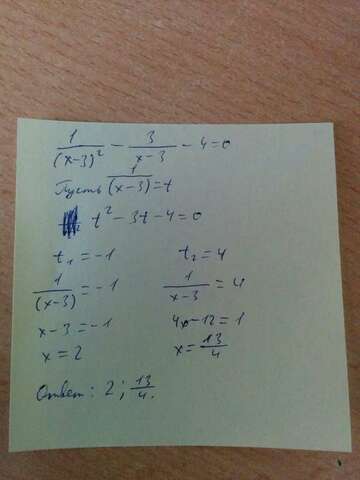 1/(x-3)² - 3/(x-3) - 4=0
Пусть 1/(x-3)=t
t²-3t-4=0
t₁=-1 t₂=4
1/(x-3)=-1 1/(x-3)=4
x-3=-1 4x-12=1
x=2 x=13/4
Ответ: 2; 13/4.